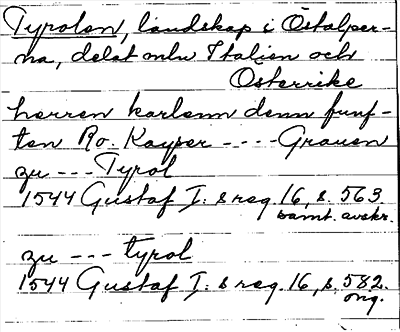 Tyrolen, landskap i Östalper-
na, delat mln Italien och
Österrike
herren karlenn denn funf-
ten Ro. Kayser ---- Grauen
zu --- Tyrol
1544 Gustaf I:s reg. 16, s. 563
samt. avskr.
zu --- tyrol
1544 Gustaf I:s reg. 16, s. 582.
orig.